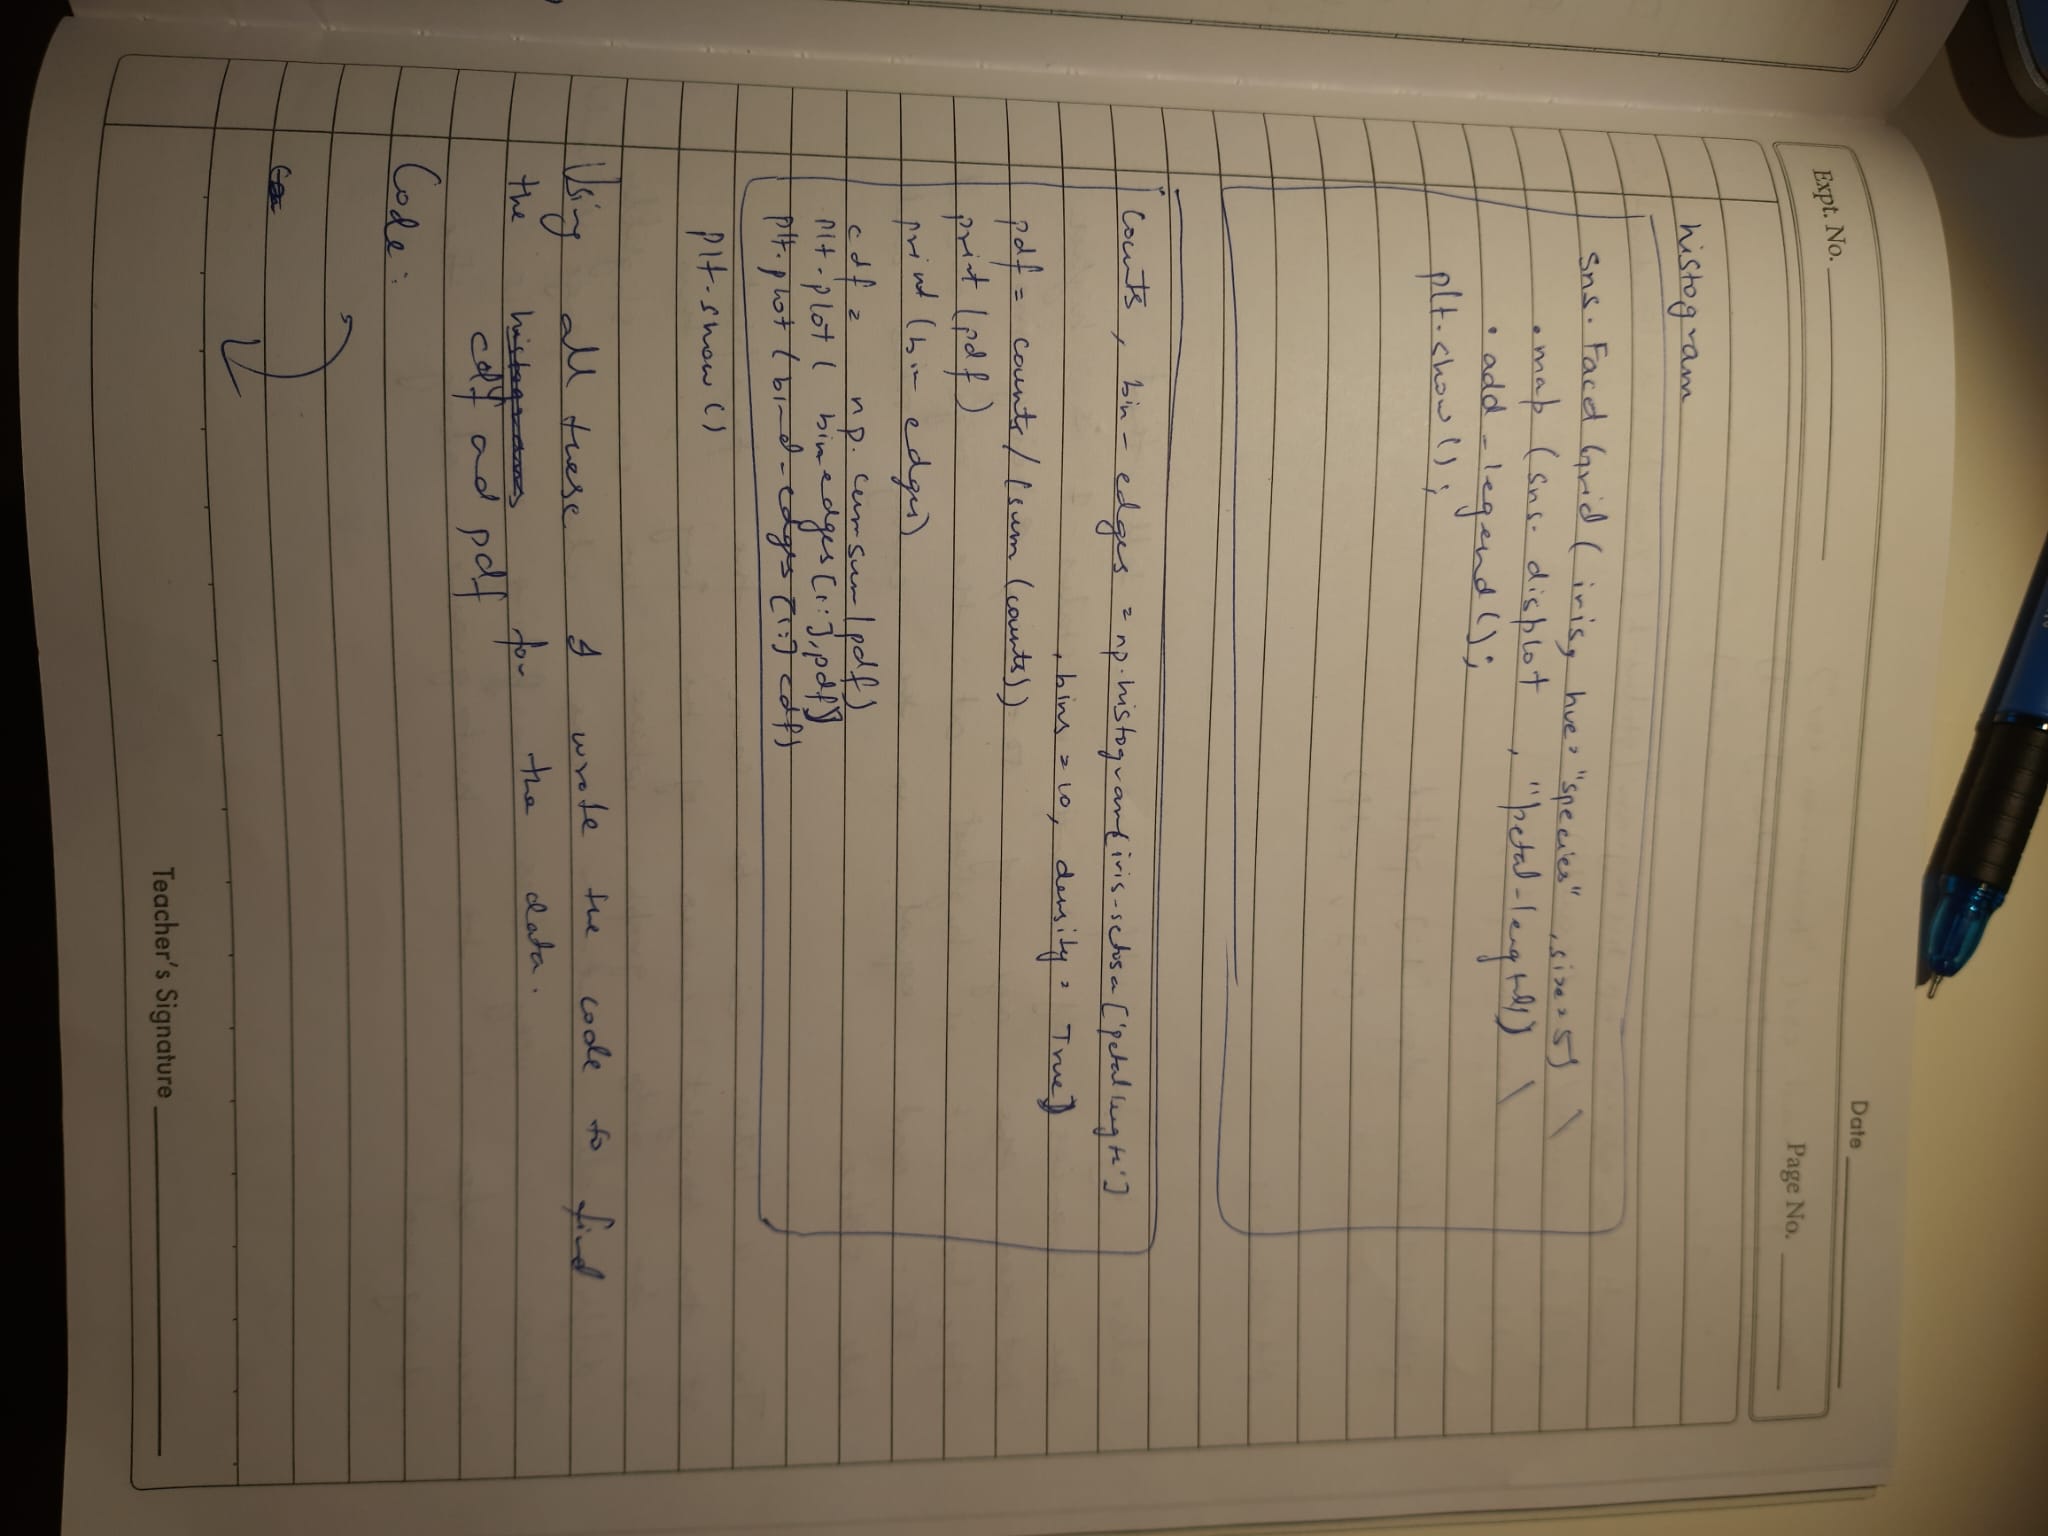 Date
Expt. No.
Page No.
histogram
sns. Facet Grid ( iris, hue= "species" , size= 5) \
. map ( sns. displot , "petal-length") \
. add - legend ();
plt. show ();
Counts , bin - edges = np. histogram(iris-setosa['petal length']
, bins = 10, density = True)
pdf = counts / (sum (counts))
print (pdf)
print (bin edges)
cdf = np. cumsum (pdf)
plt. plot ( bin edges [1:], pdf)
plt. plot ( bin d - edges [1:] cdf)
plt. show ()
Using all these I wrote the code to find
the histograms for the data.
cdf and pdf
Code :
Teacher's Signature